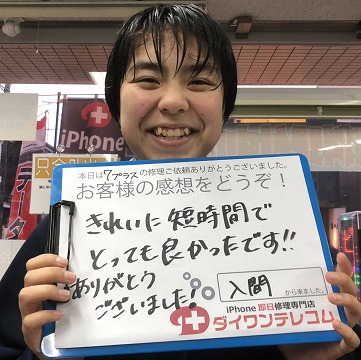 iPhone
本日は7プラスの修理ご依頼ありがとうございました。
お客様の感想をどうぞ!
きれいに短時間で
とっても良かったです!!
ありがとう
ございました!
入間 から来ました。
iPhone 即日修理専門店
ダイワンテレコム